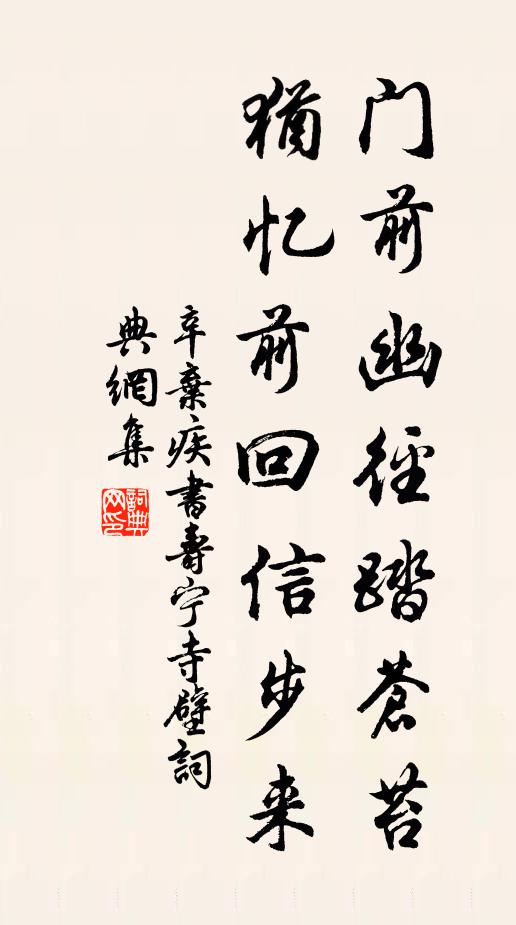 门前幽径踏蒼苔
猶忆前回信步来
辛棄疾書壽宁寺壁詞
典網集
詞典网印